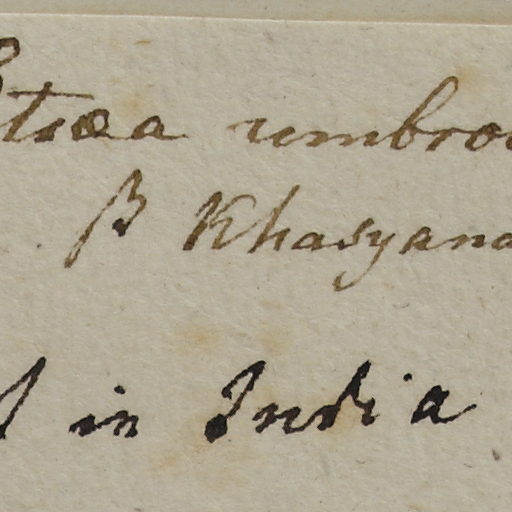 tsæa umbro
β Khasyana
in India